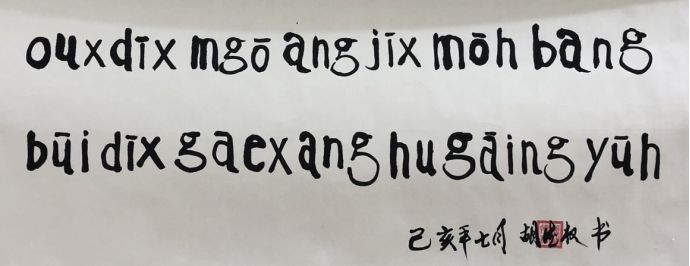 ouxdīx mgō ang jīx mōh bang
būi dīx gaexang hu gāing yūh
己亥年七月 胡 权 书